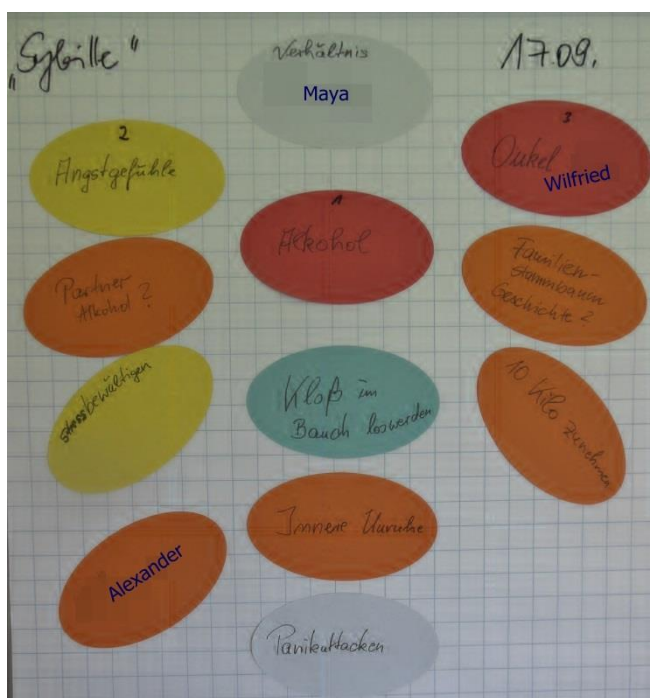 „Sybille“
17.09.
Verhältnis
Maya
2
Angstgefühle
3
Onkel
Wilfried
1
Alkohol
Partner
Alkohol?
Familien-
stammbaum
Geschichte?
Stressbewältigen
Kloß im
Bauch loswerden
10 Kilo zunehmen
Alexander
Innere Unruhe
Panikattacken